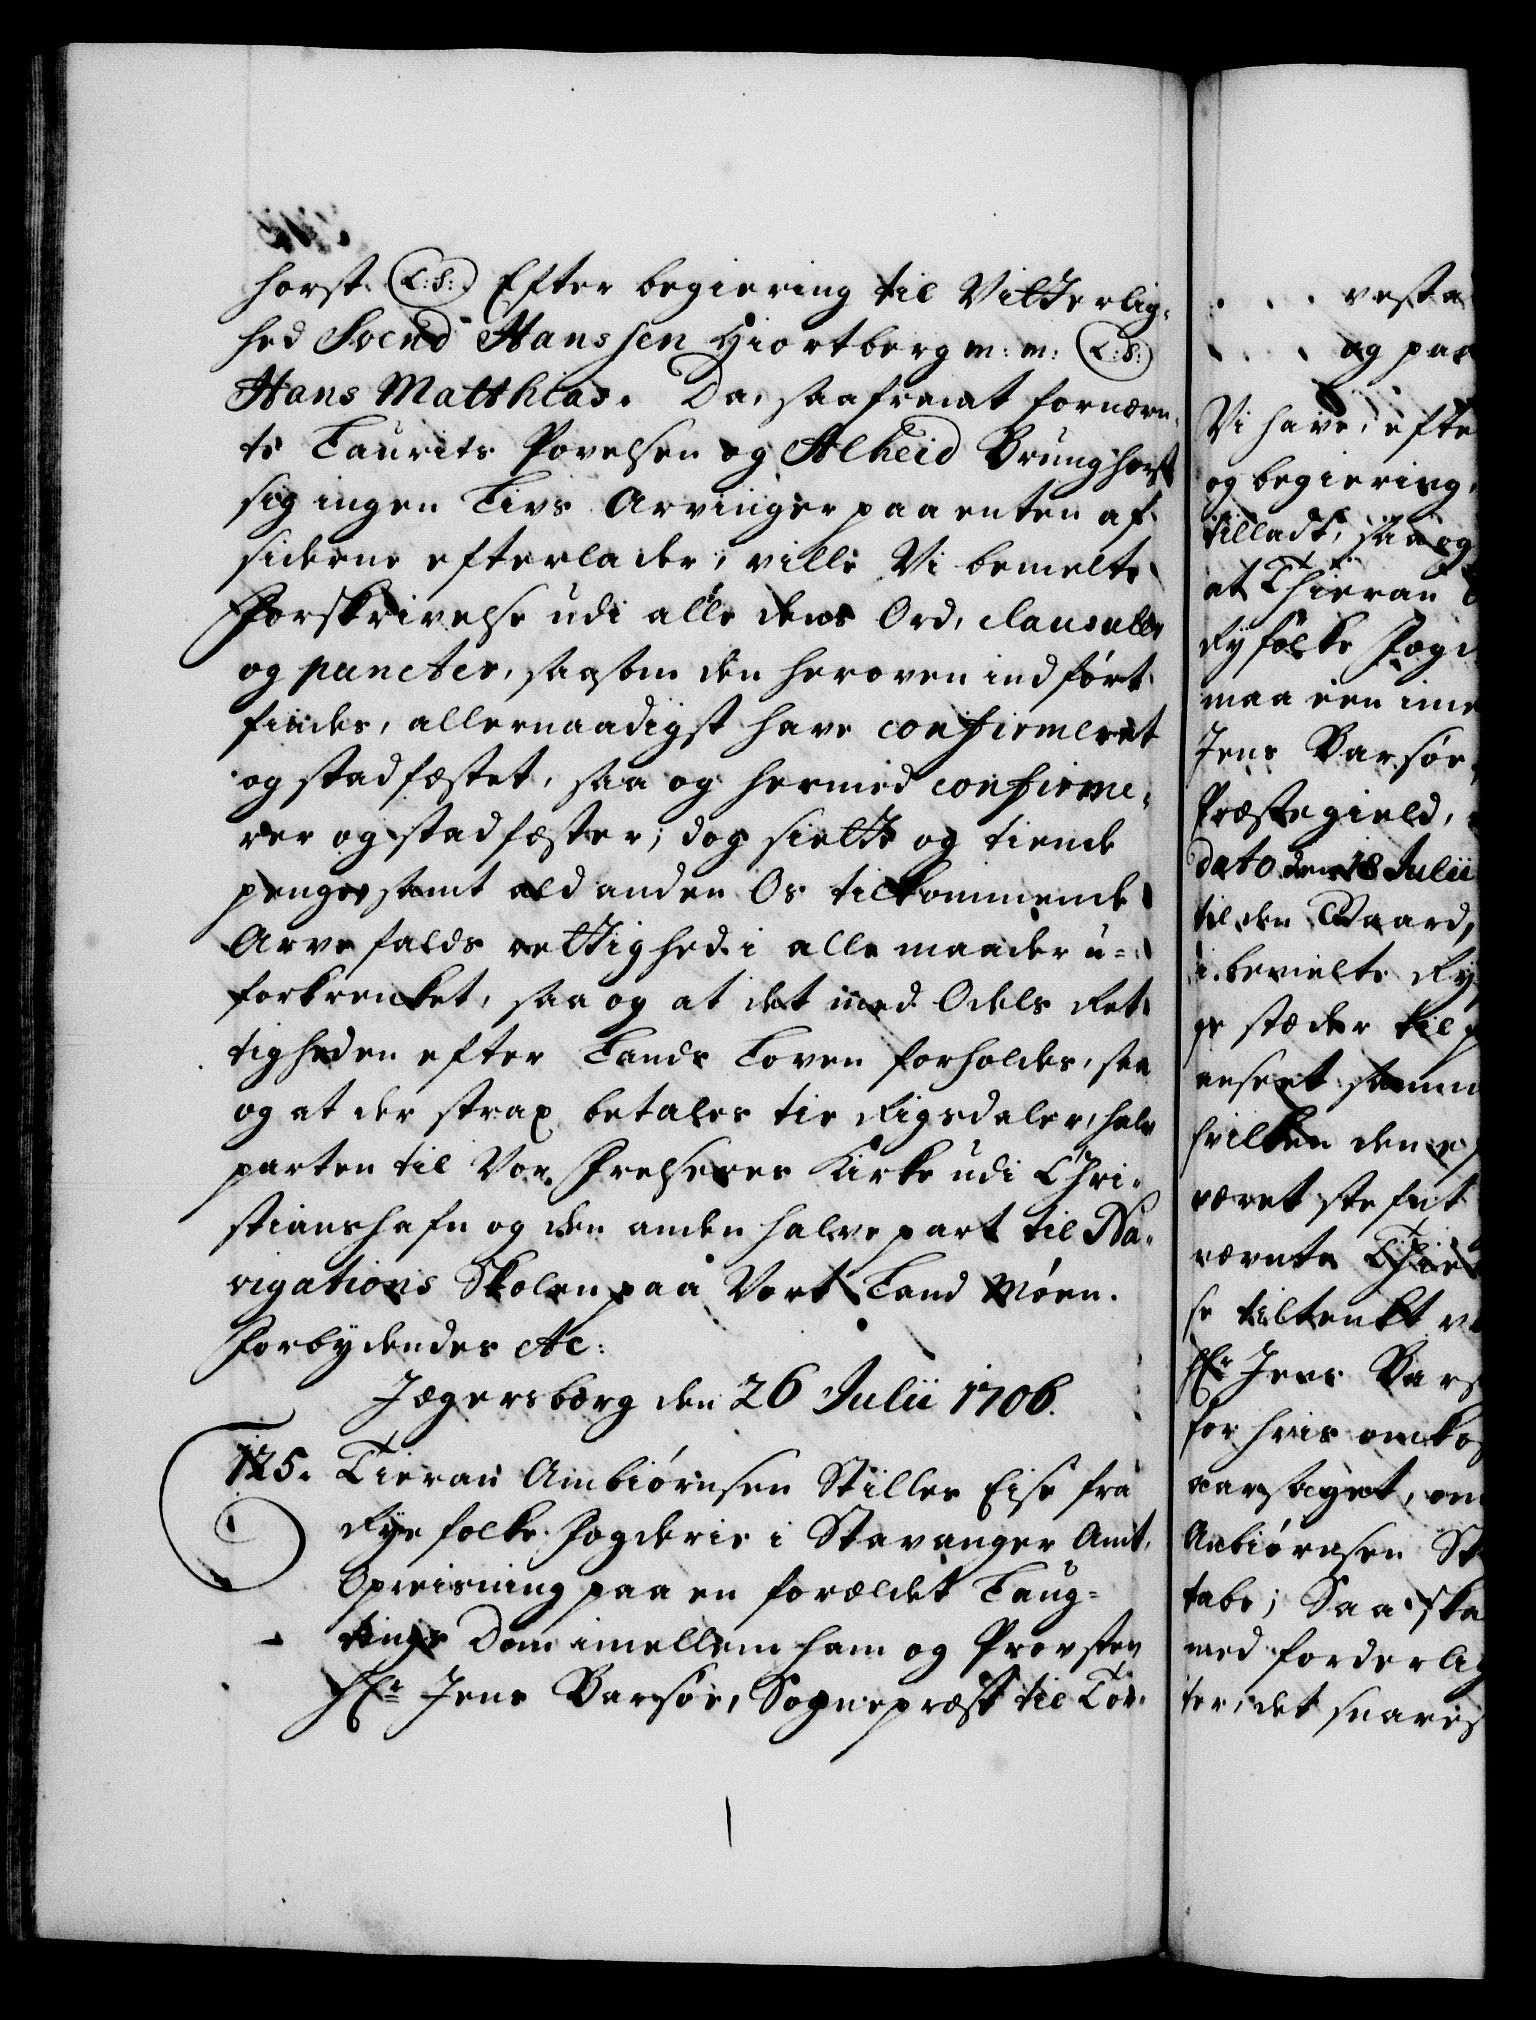 horst. (L:S:) Efter begiering til Vitterlig-
hed Svend Hanssen Hiortberg m: m: (L:S:)
Hans Matthias. Da, saafremt fornævn-
te Laurits Povelsen og Alheid Brunghorst
sig ingen Livs Arvinger paa enten af
siderne efterlader, ville Vi bemelte
Forskrivelse udi alle dens Ord, clausuller
og puncter, saasom den heroven indført
findes, allernaadigst have confirmeret
og stadfæstet, saa og hermed confirme-
rer og stadfæster; dog siette og tiende
penge samt ald anden Os tilkommende
Arvefalds rettighed i alle maader u-
forkrenket, saa og at det med Odels Ret-
tigheden efter Lands Loven forholdes, saa
og at der strax betales tie Rigsdaler, halv
parten til Vor Frelseres Kirke udi Chri-
stianshafn og den anden halve part til Na-
vigations Skolen paa Vort Land Møen.
Forbydendes etc:
Jægersborg den 26 Julii 1706.
125. Tieran Ambiørnsen Stiller Eise fra
Rye folke Fogderie i Stavanger Amt,
Opreisning paa en forældet Laug-
tings Dom imellem ham og Provsten
Hr Jens Barsøe, Sognepræst til Tor-
vesta
og paa
Vi have, efte
og begiering,
tilladt, saa og
at Thieran
Ryfolke Fogd
maa een ime
Jens Barsøe,
Præstegield,
dato den 18 Julii
til den Gaard,
i bemelte Ry
ge stæder til
anseet samm
hvilken den
været stefnt
nævnte Thier
se tiltenkt
Hr Jens Bars
for hvis omkos
aarsaget, om
Anbiørnsen St
tabe; Saa ska
med forderlig
ter, det snares